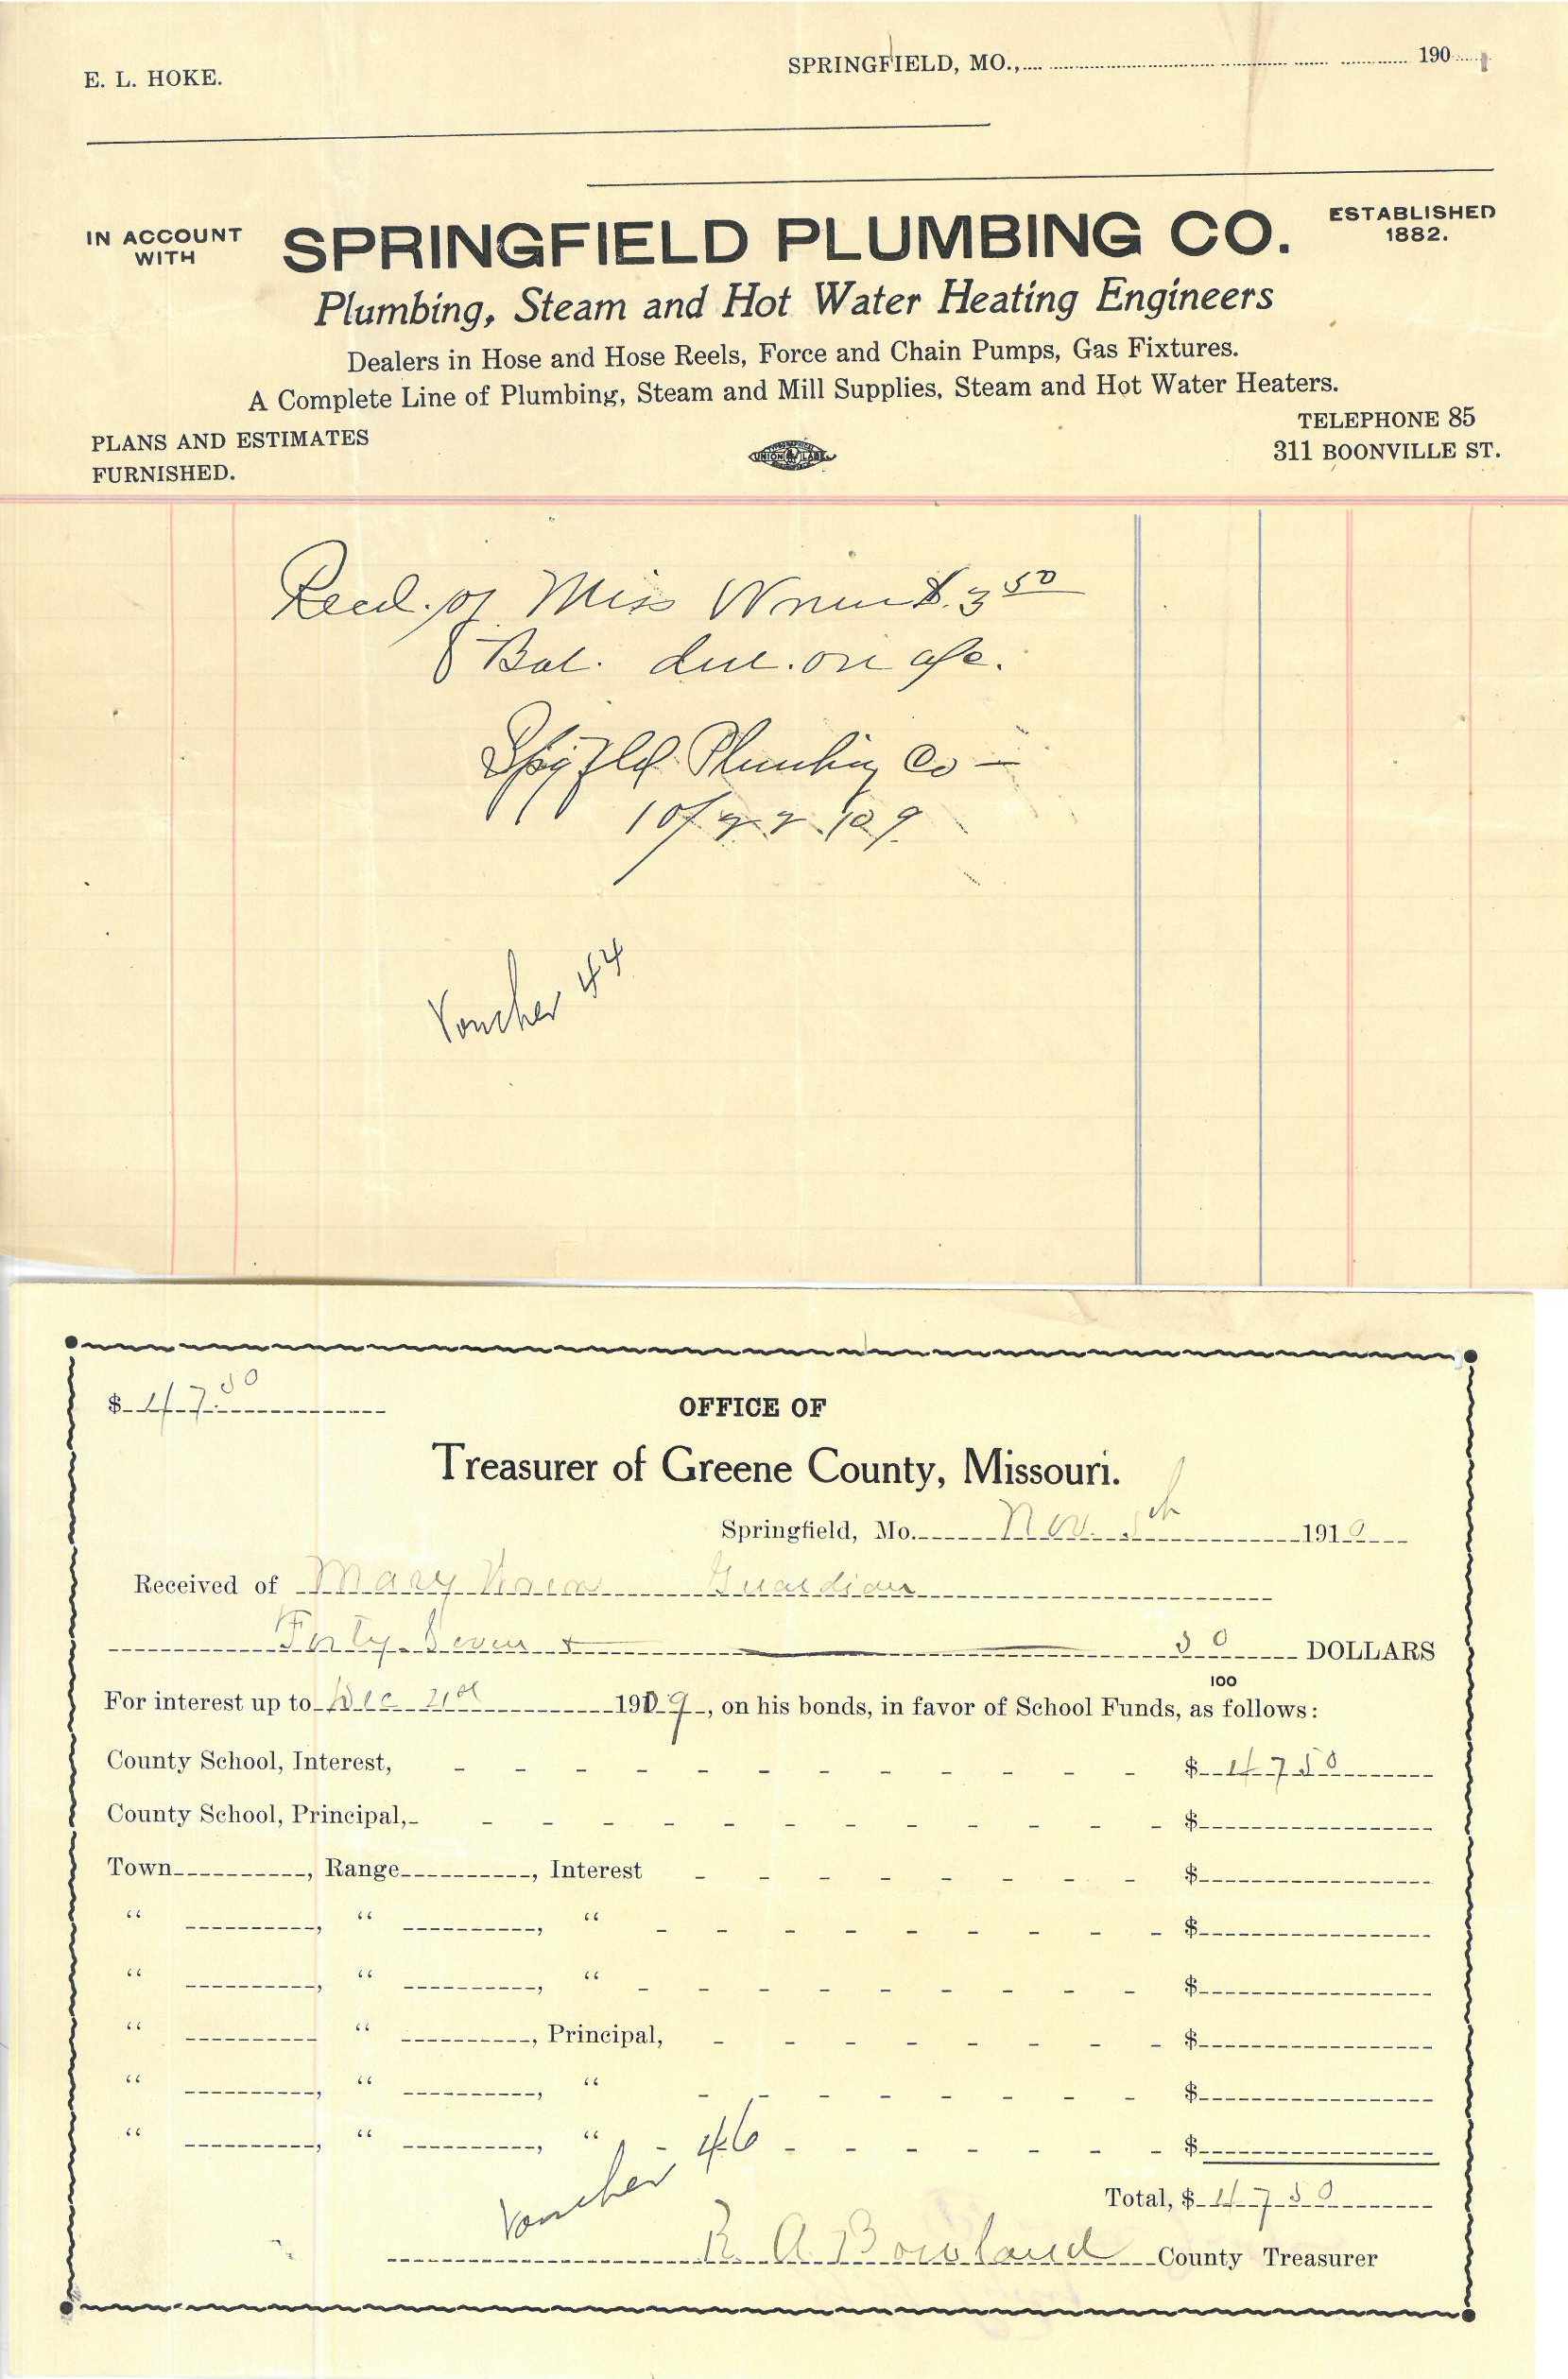 E. L. HOKE.
SPRINGFIELD, MO., 190
IN ACCOUNT WITH
SPRINGFIELD PLUMBING CO.
ESTABLISHED 1882.
Plumbing, Steam and Hot Water Heating Engineers
Dealers in Hose and Hose Reels, Force and Chain Pumps, Gas Fixtures.
A Complete Line of Plumbing, Steam and Mill Supplies, Steam and Hot Water Heaters.
PLANS AND ESTIMATES
FURNISHED.
UNION LABEL
TELEPHONE 85
311 BOONVILLE ST.
Recd. of Miss $. 3 50
Bal. due on a/c.
Spgfld Plumbing Co
10/22 09
Voucher 44
$ 47.50
OFFICE OF
Treasurer of Greene County, Missouri.
Springfield, Mo. Nov. 5th 1910
Received of Mary Guardian
Forty-Seven + 50/100 DOLLARS
For interest up to Dec 21st 1909, on his bonds, in favor of School Funds, as follows:
County School, Interest, $ 47 50
County School, Principal, $
Town , Range , Interest $
“ , “ , “ $
“ , “ , “ $
“ “ , Principal, $
“ , “ , “ $
“ , “ , “ $
Voucher 46
Total, $ 47 50
R. A. Bowland County Treasurer